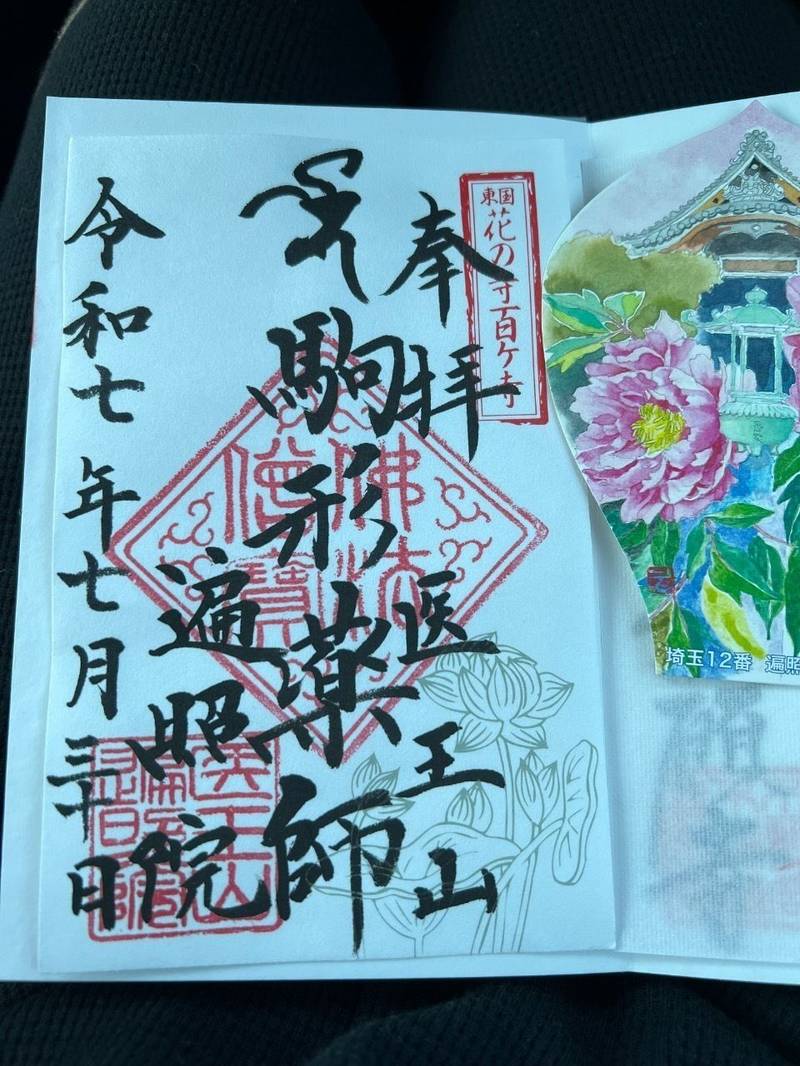 東国花の寺百ケ寺
奉拝
医王山
駒形薬師
佛法
僧寳
遍照院
令和七年七月三十日
埼玉12番 遍照